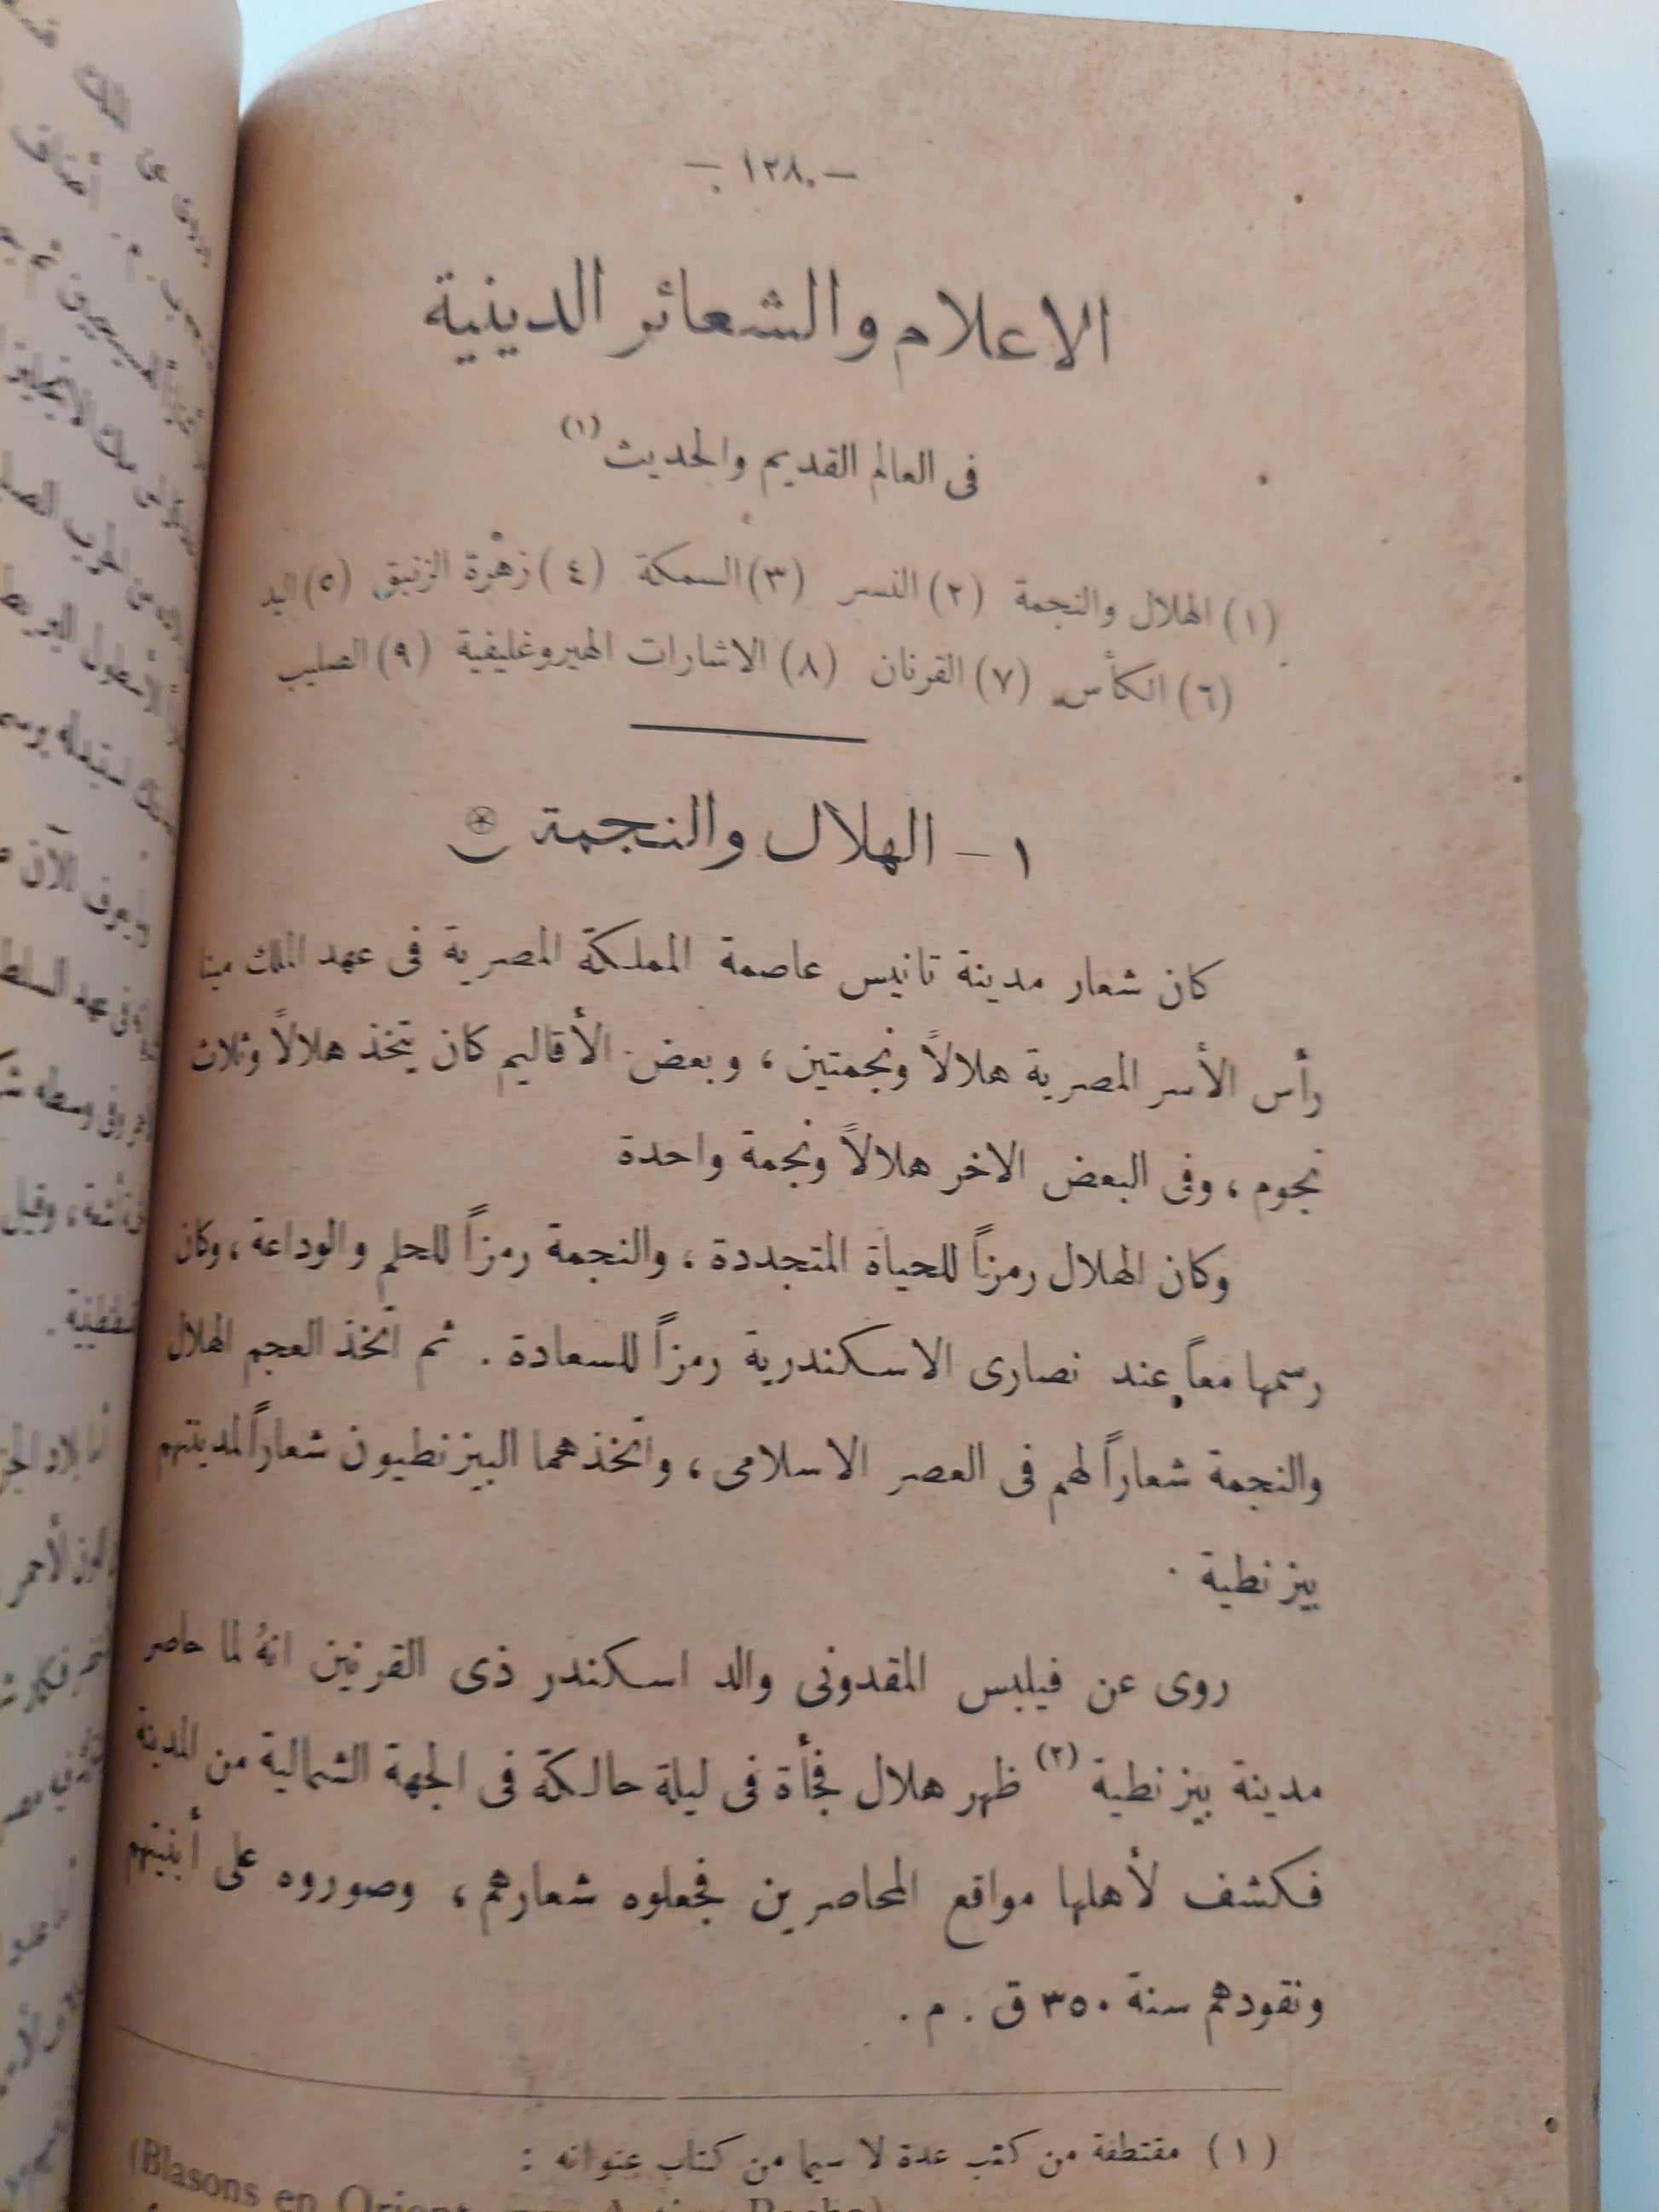 — ١٢٨ —
الاعلام والشعائر الدينية
فى العالم القديم والحديث (١)
(١) الهلال والنجمة (٢) النسر (٣) السمكة (٤) زهرة الزنبق (٥) اليد
(٦) الكأس (٧) القرنان (٨) الاشارات الهيروغليفية (٩) الصليب
١ — الهلال والنجمة
كان شعار مدينة تانيس عاصمة المملكة المصرية فى عهد الملك مينا
رأس الأسر المصرية هلالاً ونجمتين ، وبعض الأقاليم كان يتخذ هلالاً وثلاث
نجوم ، وفى البعض الاخر هلالاً ونجمة واحدة
وكان الهلال رمزاً للحياة المتجددة ، والنجمة رمزاً للحلم والوداعة ، وكان
رسمها معاً عند نصارى الاسكندرية رمزاً للسعادة . ثم اتخذ العجم الهلال
والنجمة شعاراً لهم فى العصر الاسلامى ، واتخذهما البيزنطيون شعاراً لمدينتهم
بيزنطية .
روى عن فيلبس المقدونى والد اسكندر ذى القرنين انهُ لما حاصر
مدينة بيزنطية (٢) ظهر هلال فجأة فى ليلة حالكة فى الجهة الشمالية من المدينة
فكشف لأهلها مواقع المحاصرين فجعلوه شعارهم ، وصوروه على أبنيتهم
ونقودهم سنة ٣٥٠ ق . م .
(١) مقتطفة من كتب عدة لا سيما من كتاب عنوانه :
(Blasons en Orient